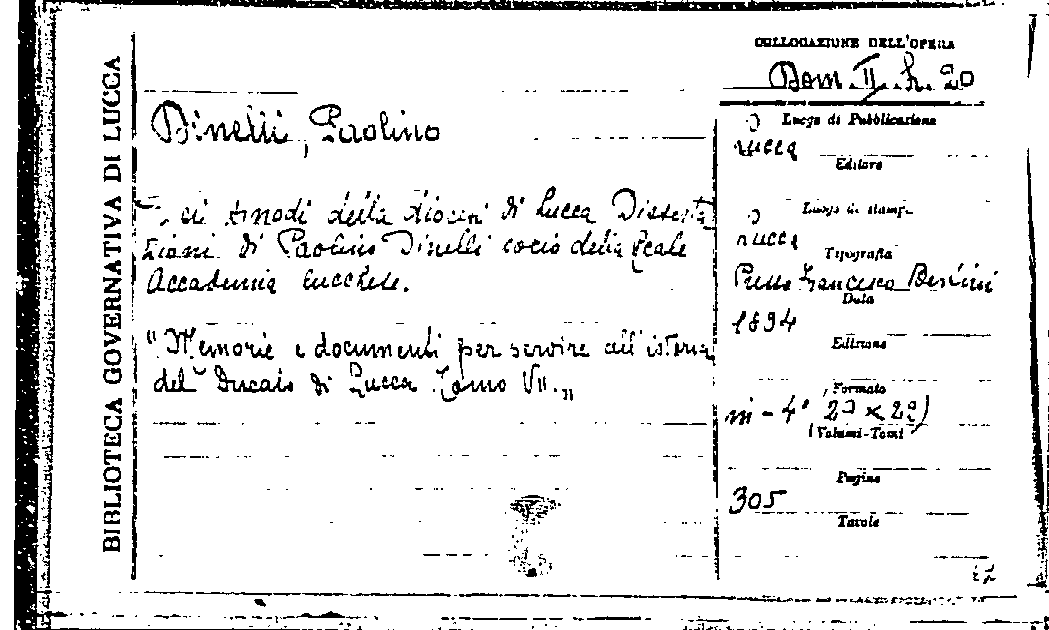 BIBLIOTECA GOVERNATIVA DI LUCCA
COLLOCAZIONE DELL'OPERA
Dom. II. h. 20
Dinelli, Paolino
sui sinodi della diocesi di Lucca Disserta
zioni di Paolino Dinelli socio della Reale
Accademia Lucchese.
"Memorie e documenti per servire all'istoria
del Ducato di Lucca Tomo VII."
Luogo di Pubblicazione
Lucca
Editore
Luogo di stampa
Lucca
Tipografia
Presso Francesco Bertini
Data
1834
Edizione
Formato
in - 4°
(Volumi-Tomi)
Pagine
305
Tavole